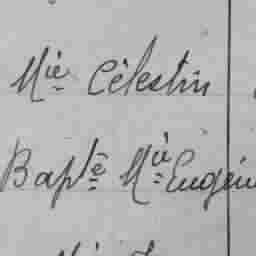 Mie Célestin
Bapte Mie Eugén